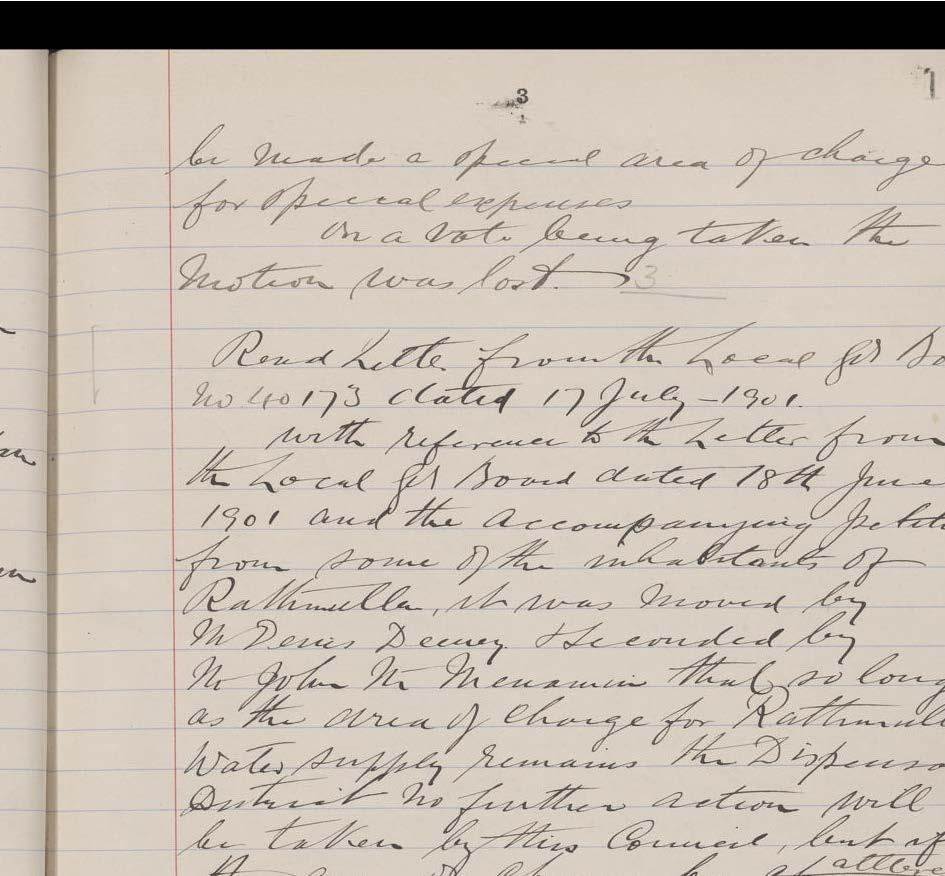 3
1
be made a special area of charge
for special expenses
On a vote being taken the
Motion was lost. 3
Read Letter from the Local Gvt Bo
No 40173 dated 17 July - 1901.
with reference to the Letter from
the Local Gvt Board dated 18th June
1901 and the accompanying petiti
from some of the inhabitants of
Rathmullan, it was moved by
Mr Denis Deeney & Seconded by
Mr John Mc Menamin that so long
as the area of charge for Rathmull
Water supply remains the Dispensa
District no further action will
be taken by this Council, but if